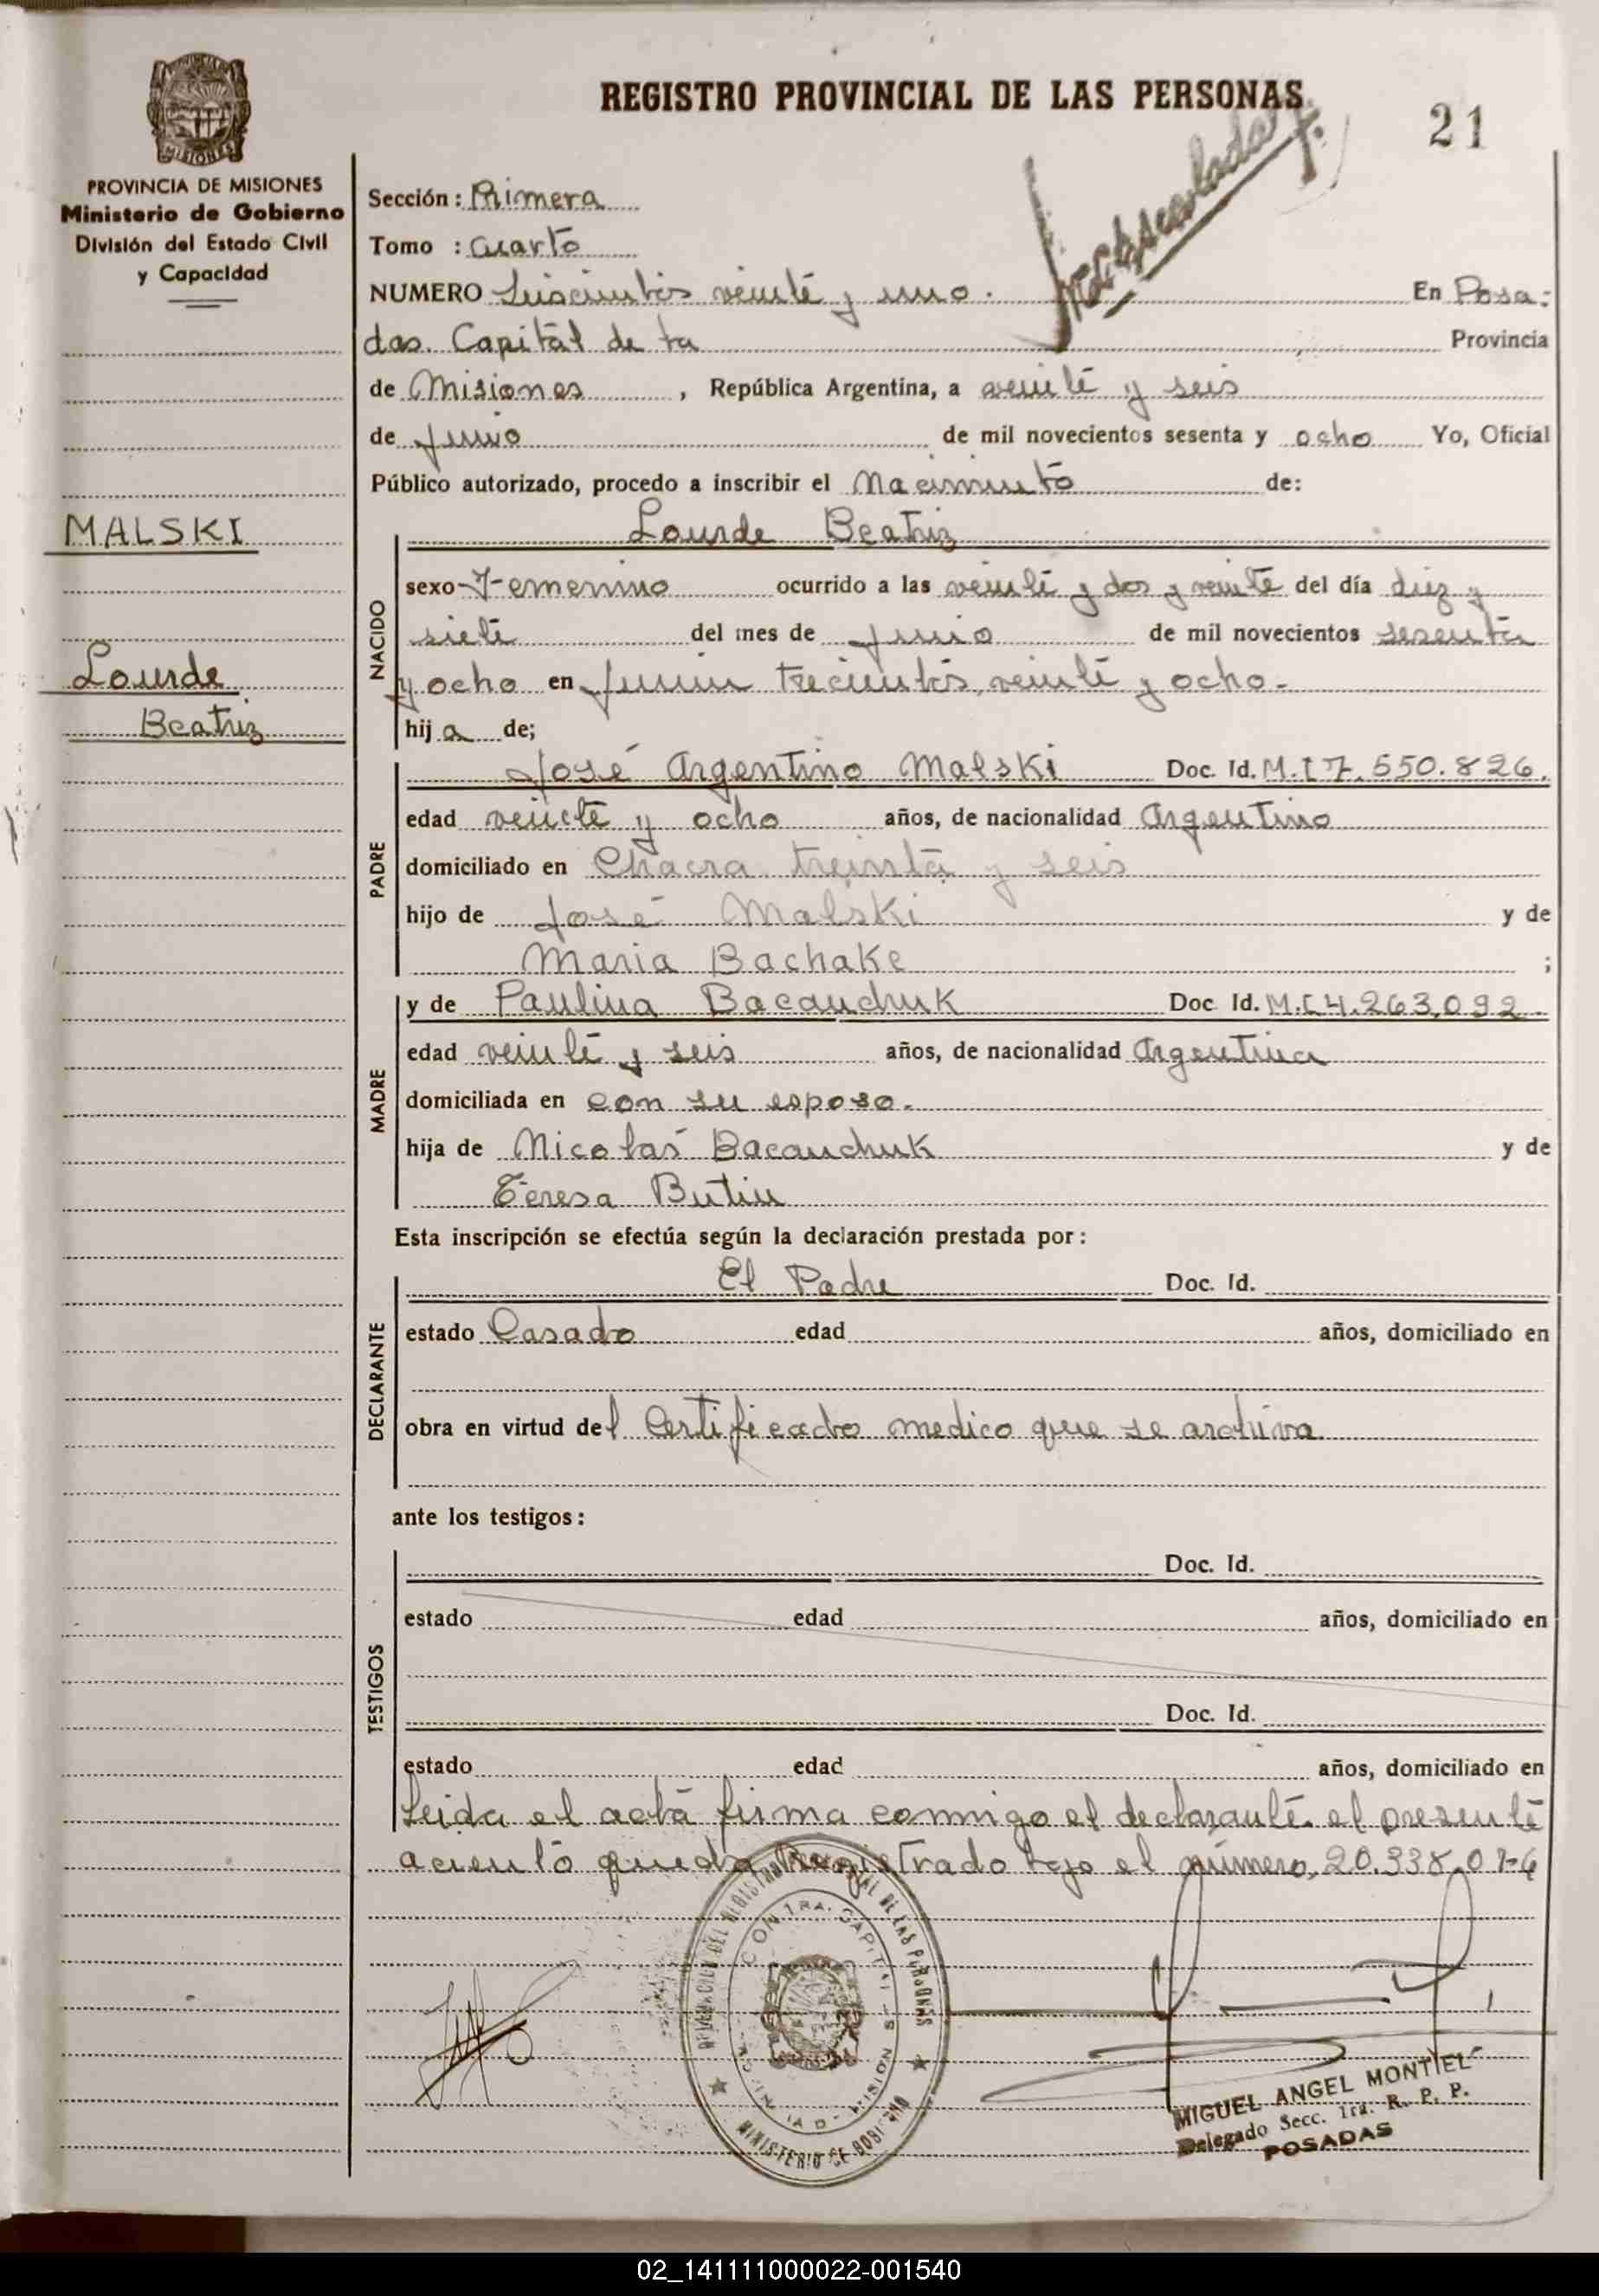 REGISTRO PROVINCIAL DE LAS PERSONAS
21
MISIONES
PROVINCIA DE MISIONES
Ministerio de Gobierno
División del Estado Civil
y Capacidad
MALSKI
Lourde
Beatriz
Sección : Primera
Tomo : Cuarto
NUMERO Seiscientos veinte y uno. En Posa-
das. Capital de la Provincia
de Misiones , República Argentina, a veinte y seis
de Junio de mil novecientos sesenta y ocho Yo, Oficial
Público autorizado, procedo a inscribir el Nacimiento de:
Lourde Beatriz
NACIDO
sexo Femenino ocurrido a las veinte y dos y veinte del día diez y
siete del mes de Junio de mil novecientos sesenta
y ocho en Junin trecientos veinte y ocho.-
hij a de;
PADRE
José Argentino Malski Doc. Id. M.I 7.550.826.
edad veinte y ocho años, de nacionalidad Argentino
domiciliado en Chacra treinta y seis
hijo de José Malski y de
Maria Bachake ;
MADRE
y de Paulina Bacauchuk Doc. Id. M.I 4.263.092
edad veinte y seis años, de nacionalidad Argentina
domiciliada en con su esposo.
hija de Nicolas Bacauchuk y de
Teresa Butiu
Esta inscripción se efectúa según la declaración prestada por :
DECLARANTE
El Padre Doc. Id.
estado Casado edad años, domiciliado en
obra en virtud del Certificado medico que se archiva
ante los testigos :
TESTIGOS
Doc. Id.
estado edad años, domiciliado en
Doc. Id.
estado edad años, domiciliado en
Leida el acta firma conmigo el declarante. el presente
aciento queda Registrado bajo el número, 20.338.076
MINISTERIO DE GOBIERNO
MIGUEL ANGEL MONTIEL
Delegado Secc. 1ra. R. P. P.
POSADAS
02_141111000022-001540